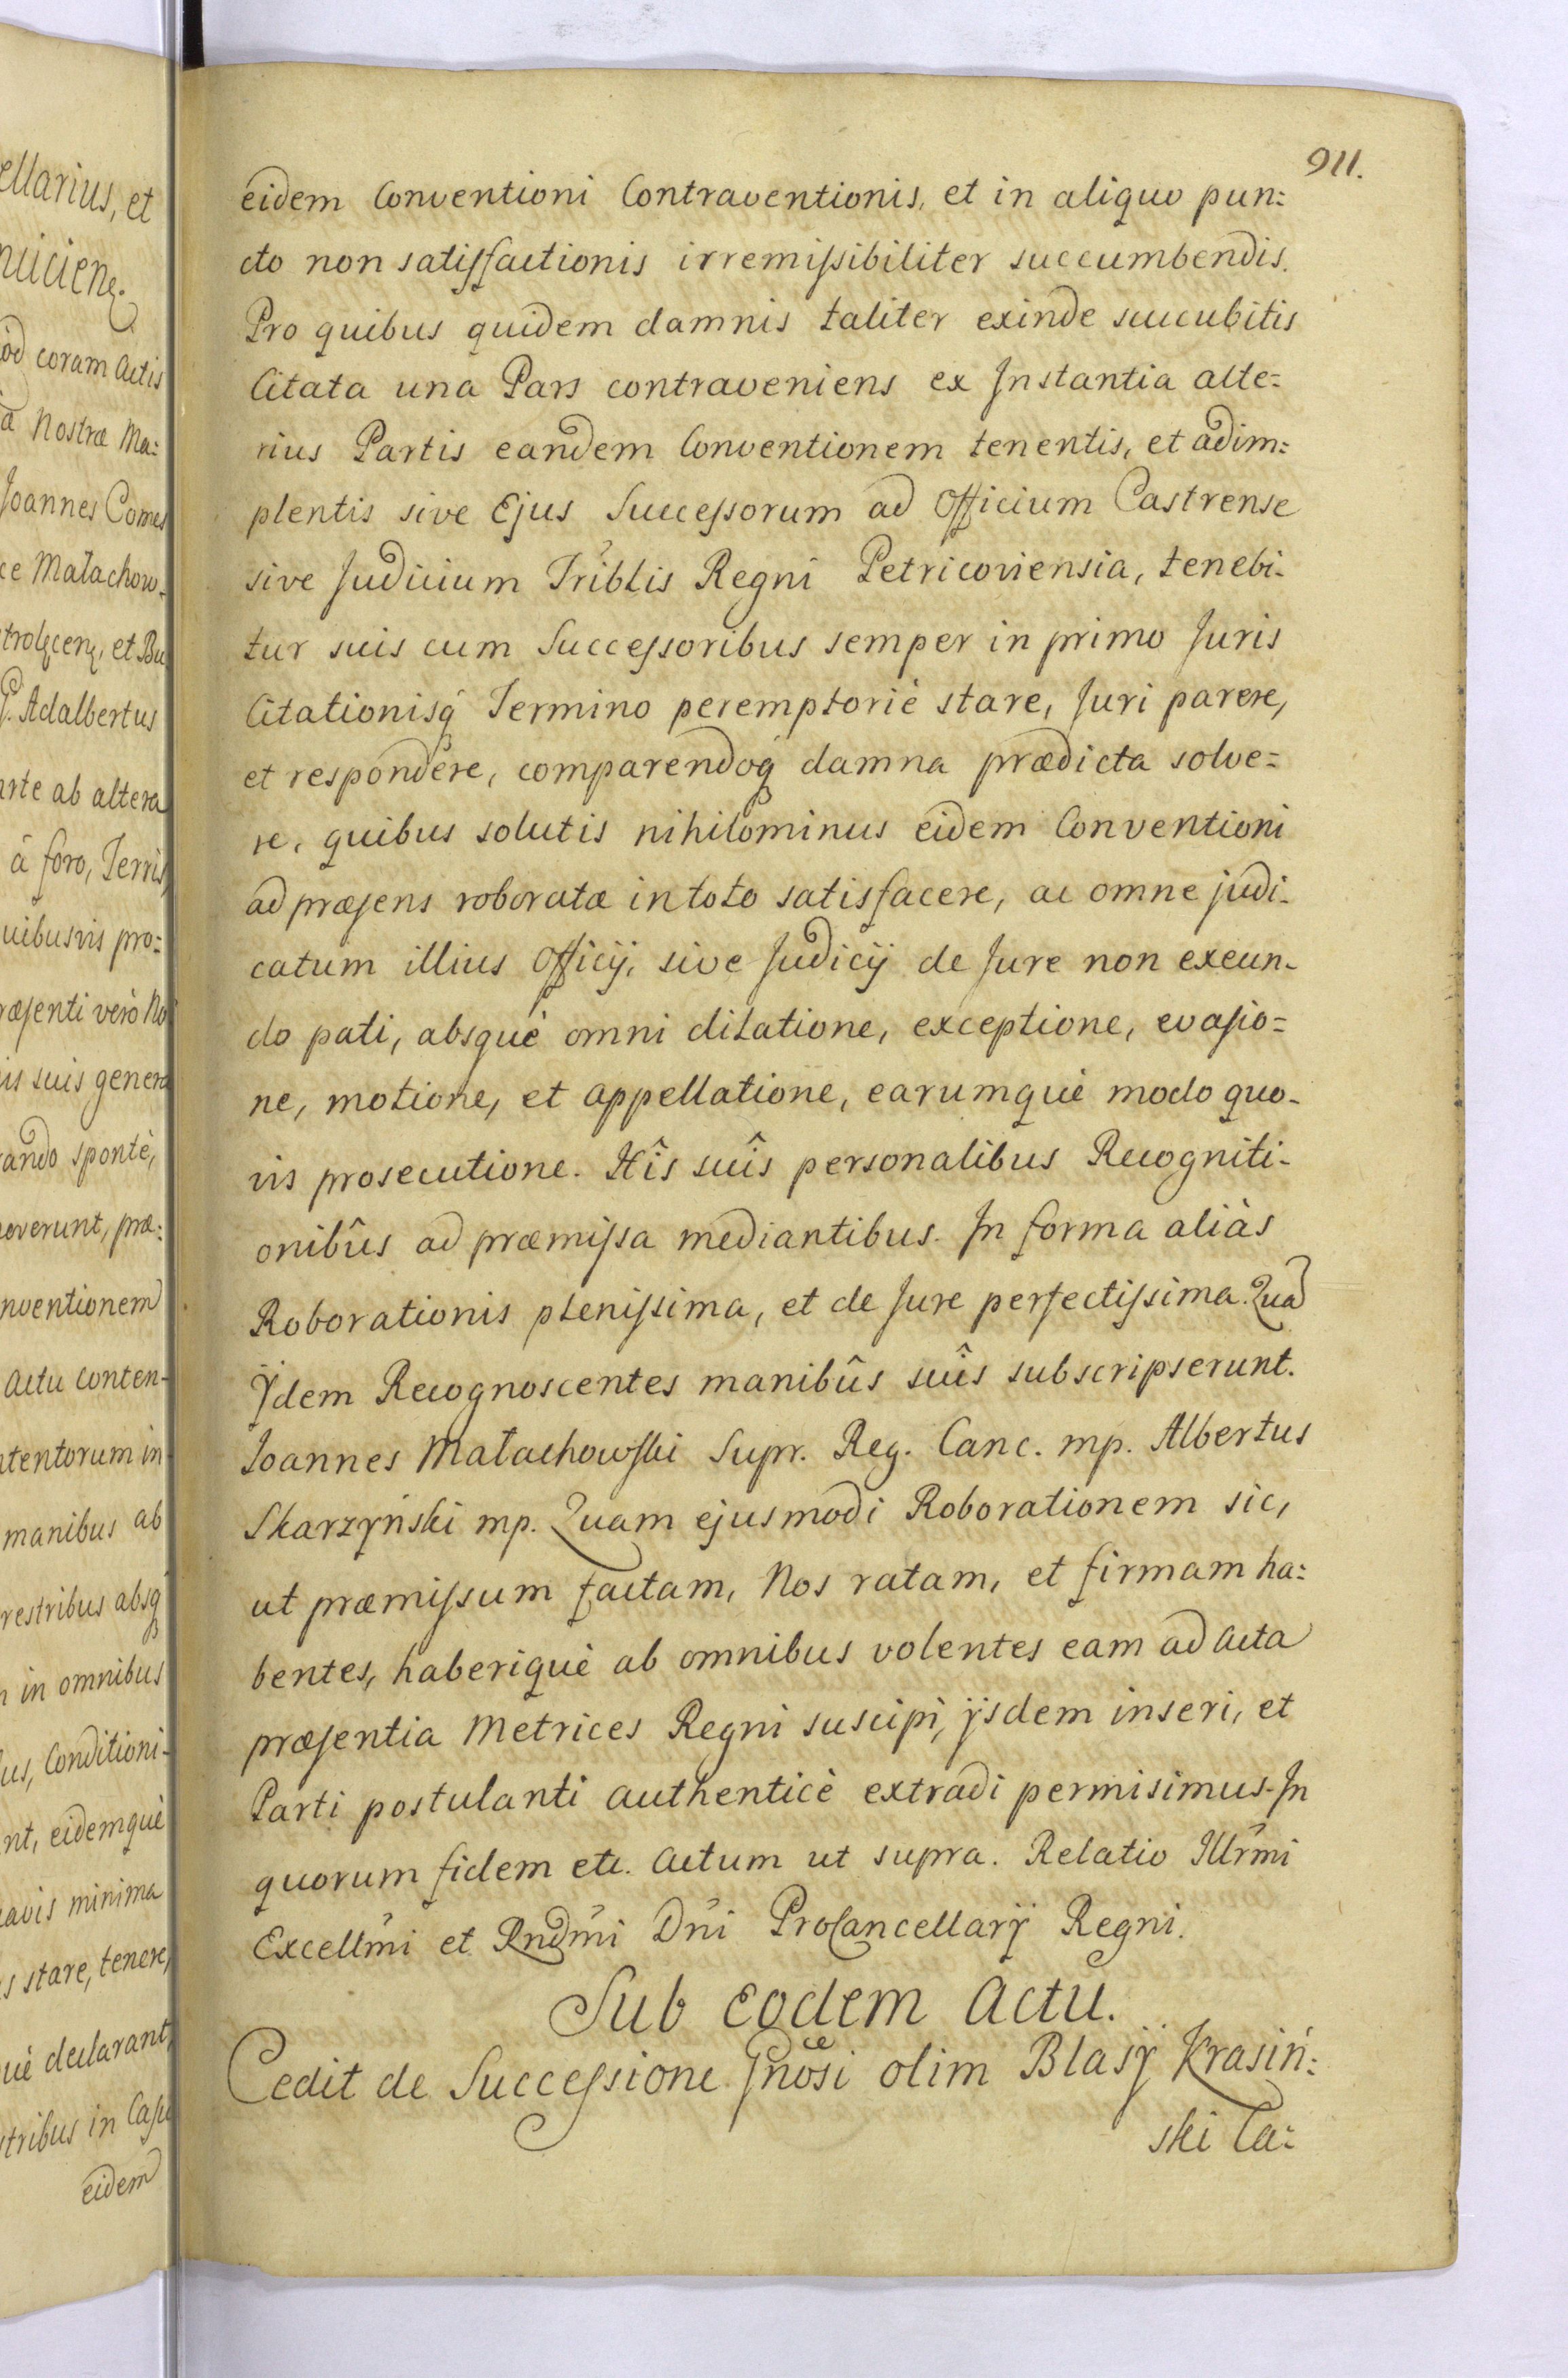 911.
eidem Conventioni Contraventionis, et in aliquo pun:
cto non satisfactionis irremissibiliter succumbendis.
Pro quibus quidem damnis taliter exinde succubitis
Citata una Pars contraveniens ex Instantia alte:
rius Partis eandem Conventionem tenentis, et adim:
plentis sive Ejus Successorum ad Officium Castrense
sive Judicium Triblis Regni Petricoviensia, tenebi-
tur suis cum Successoribus semper in primo Juris
Citationisq́ Termino peremptoriè stare, Juri parere,
et respondere, comparendoq́ damna prædicta solve:
re, quibus solutis nihilominus eidem Conventioni
ad præsens roboratæ in toto satisfacere, ac omne judi-
catum illius Officij, sive Judicij de Jure non exeun-
do pati, absquè omni dilatione, exceptione, evasio:
ne, motione, et appellatione, earumquè modo quo-
vis prosecutione. Hîs suîs personalibus Recogniti-
onibûs ad præmissa mediantibus. In forma aliàs
Roborationis plenissima, et de Jure perfectissima. Quã
Ijdem Recognoscentes manibûs suîs subscripserunt.
Joannes Małachowski Supr. Reg. Canc. mp. Albertus
Skarzyński mp. Quam ejusmodi Roborationem sic,
ut præmissum factam, Nos ratam, et firmam ha:
bentes, haberiquè ab omnibus volentes eam ad Acta
præsentia Metrices Regni suscipi, ijsdem inseri, et
Parti postulanti authenticè extradi permisimus. In
quorum fidem etc. Actum ut supra. Relatio Illrm̃i
Excellm̃i et Rndm̃i Dñi ProCancellarij Regni.
Sub eodem Actu.
Cedit de Successione Gnosi olim Blasij Krasiń:
ski Ca:
ellarius, et
coram Actis
a Nostræ Ma:
Joannes Comes
ce Małachow-
et Bu
Adalbertus
arte ab altera
à foro, Terris,
uibusvis pro:
ræsenti verò No
is suis genera
ando spontè,
noverunt, præ:
nventionem
actu conten-
ntentorum in
manibus ab
restribus absq́
in omnibus
us, Conditioni-
nt, eidemquè
avis minima
s stare, tenere,
uè declarant,
stribus in Casu
eidem